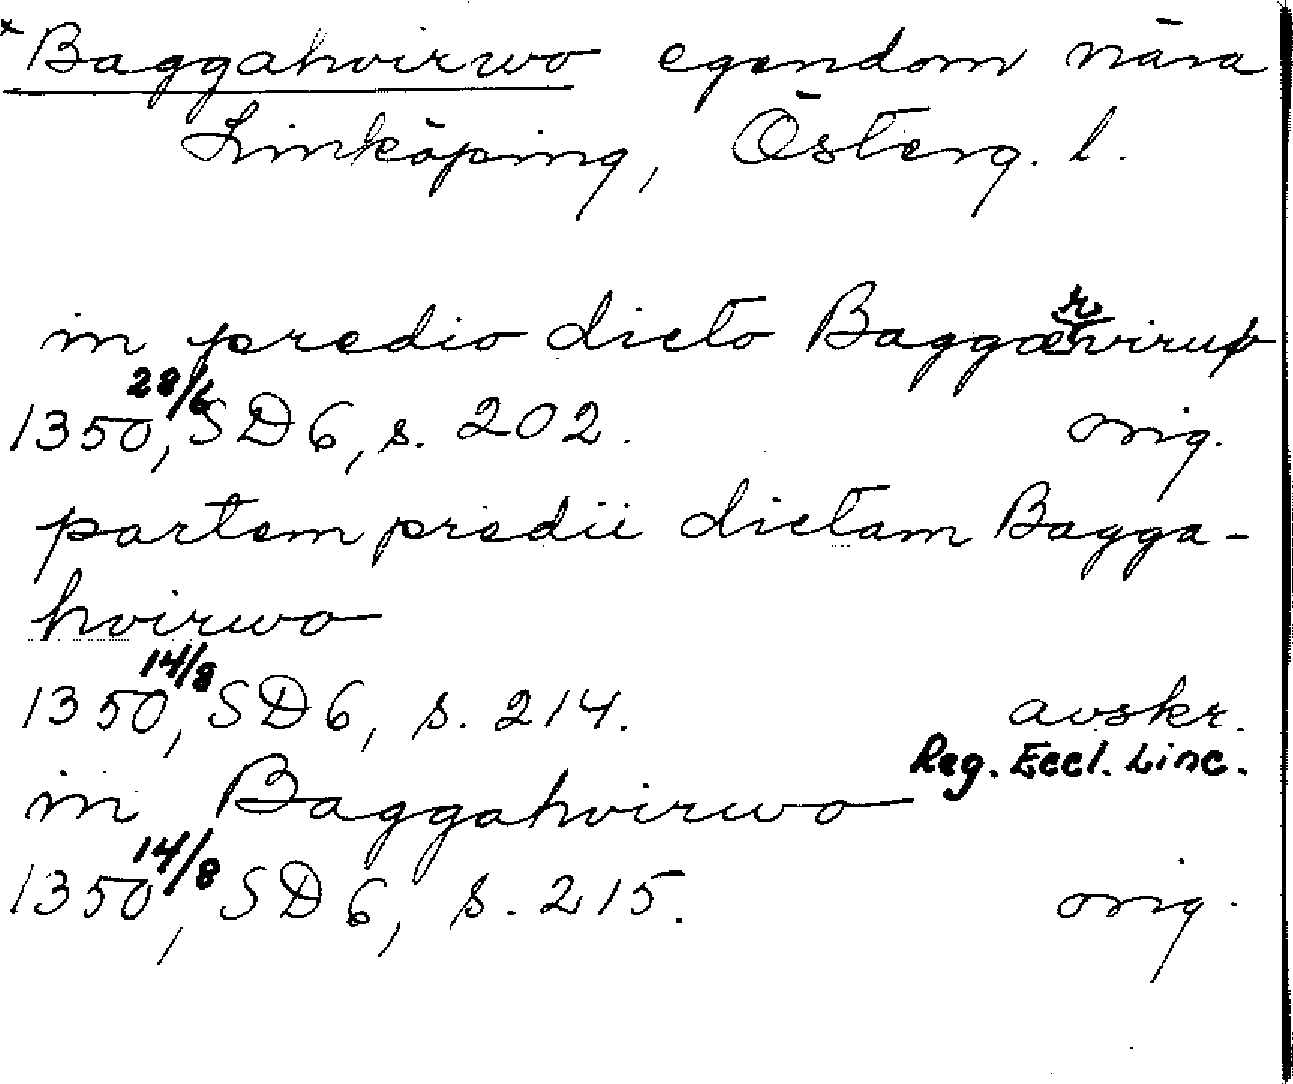 *Baggahvirwo egendom nära
Linköping, Österg. l.
in predio dicto Baggahvirup
1350 28/6, SD 6, s. 202. orig.
partem predii dictam Bagga-
hvirwo
1350 14/8, SD 6, s. 214. avskr.
Reg. Eccl. Linc.
in Baggahvirwo
1350 14/8, SD 6, s. 215. orig.